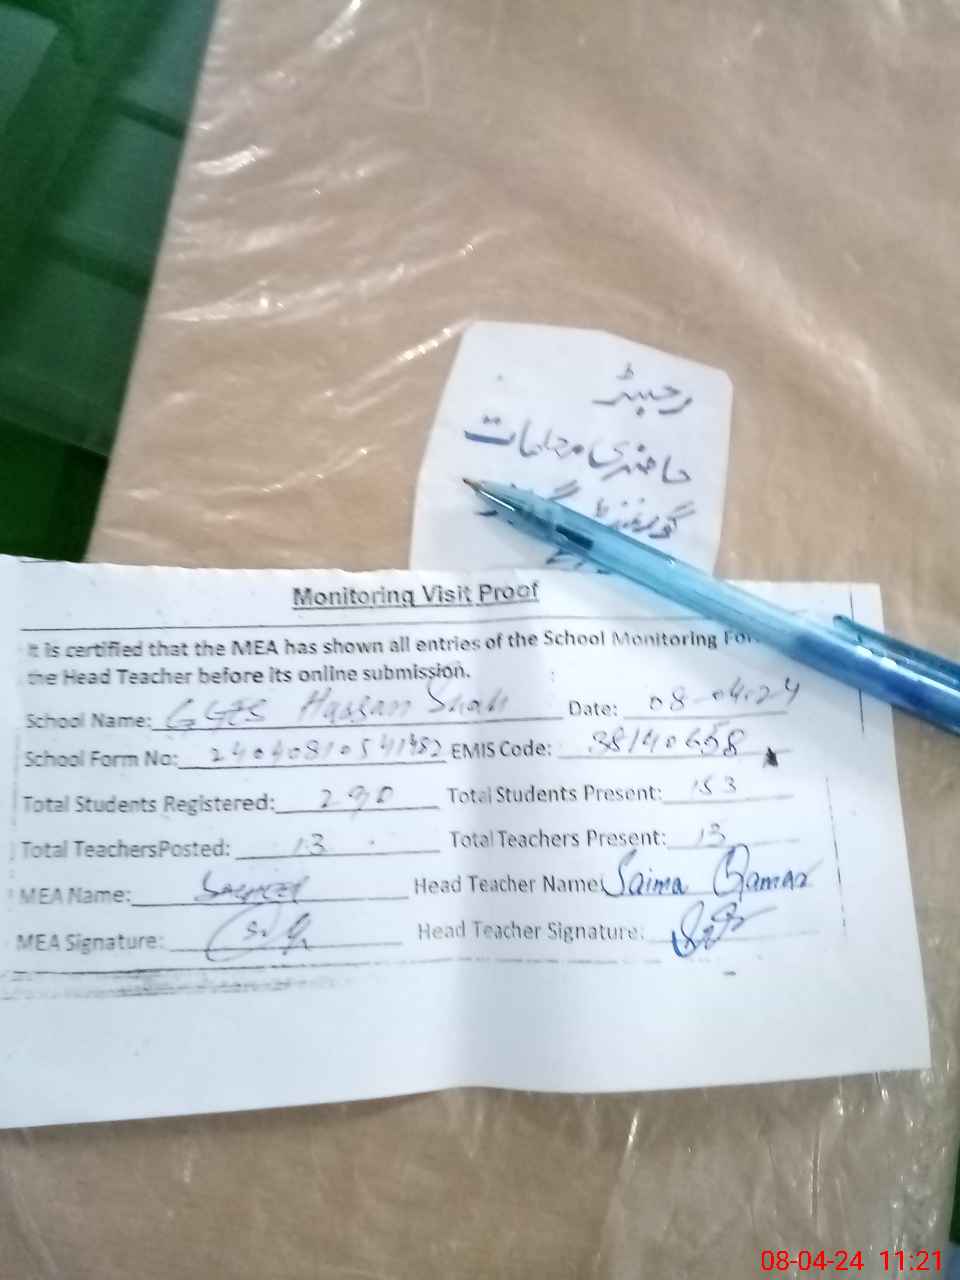 رجسٹر
حاضری معلمات
گورنمنٹ
Monitoring Visit Proof
It is certified that the MEA has shown all entries of the School Monitoring
the Head Teacher before its online submission.
School Name: GGES Hassan Shah Date: 08-04-24
School Form No: 24040810541482 EMIS Code: 38140658
Total Students Registered: 290 Total Students Present: 153
Total TeachersPosted: 13 Total Teachers Present: 13
MEA Name: Head Teacher Name: Saima Qamar
MEA Signature: Head Teacher Signature:
08-04-24 11:21